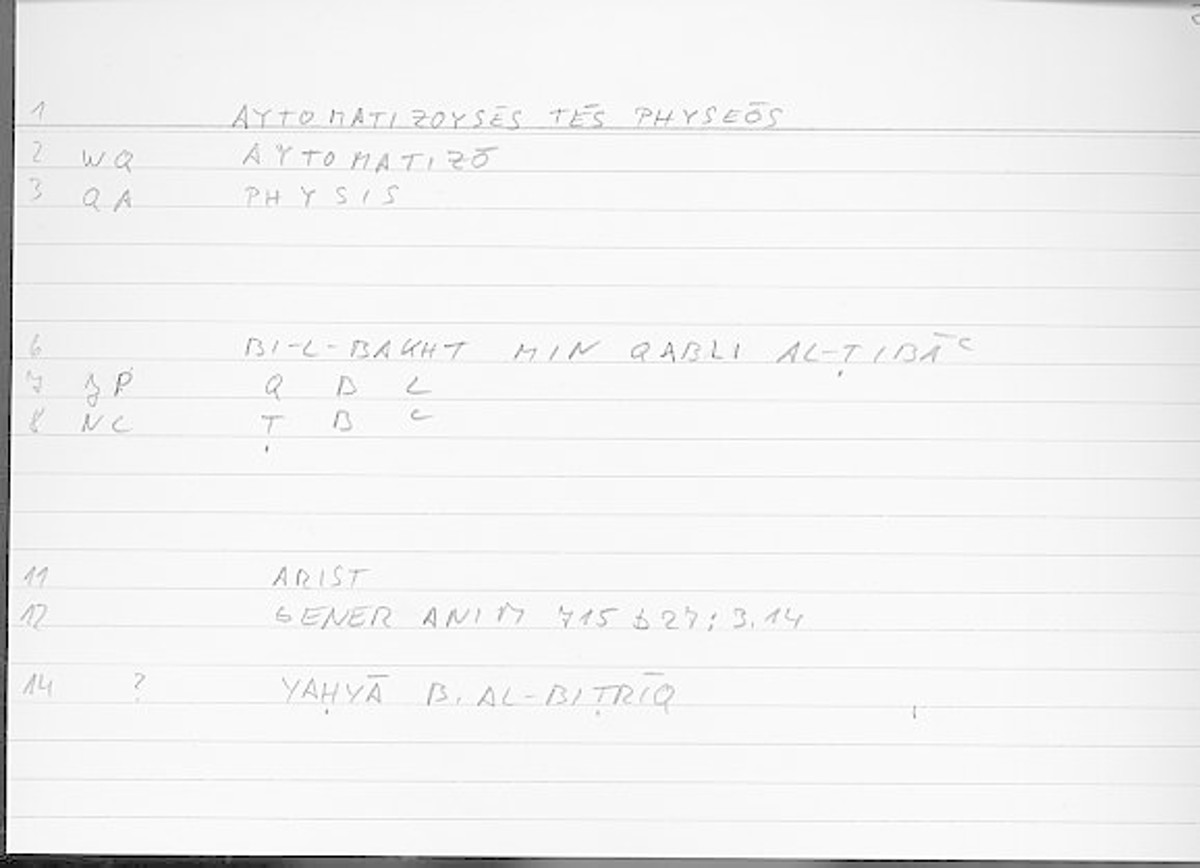 1 AYTOMATIZOYSĒS TĒS PHYSEŌS
2 WQ AYTOMATIZŌ
3 QA PHYSIS
6 BI-L-BAKHT MIN QABLI AL-ṬIBĀʿ
7 Q B L
8 NC Ṭ B ʿ
11 ARIST
12 GENER ANIM 715 b 27; 3.14
14 ? YAḤYĀ B. AL-BIṬRĪQ